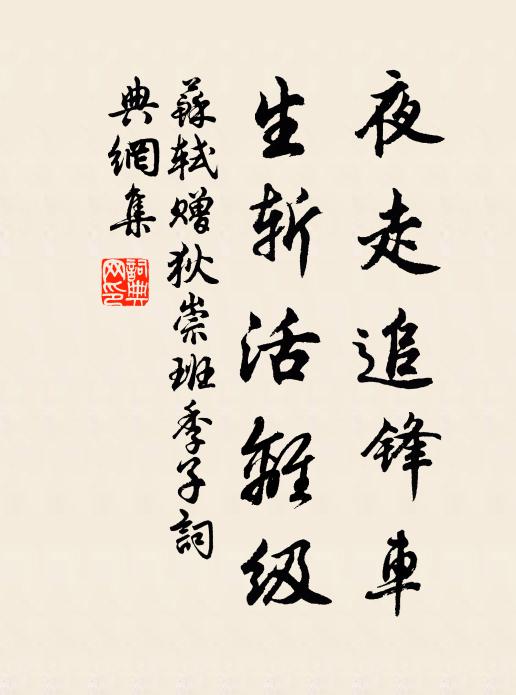 夜走追鋒車
生斬活離級
蘇軾贈狄崇班季子詞
典網集
詞典
网印